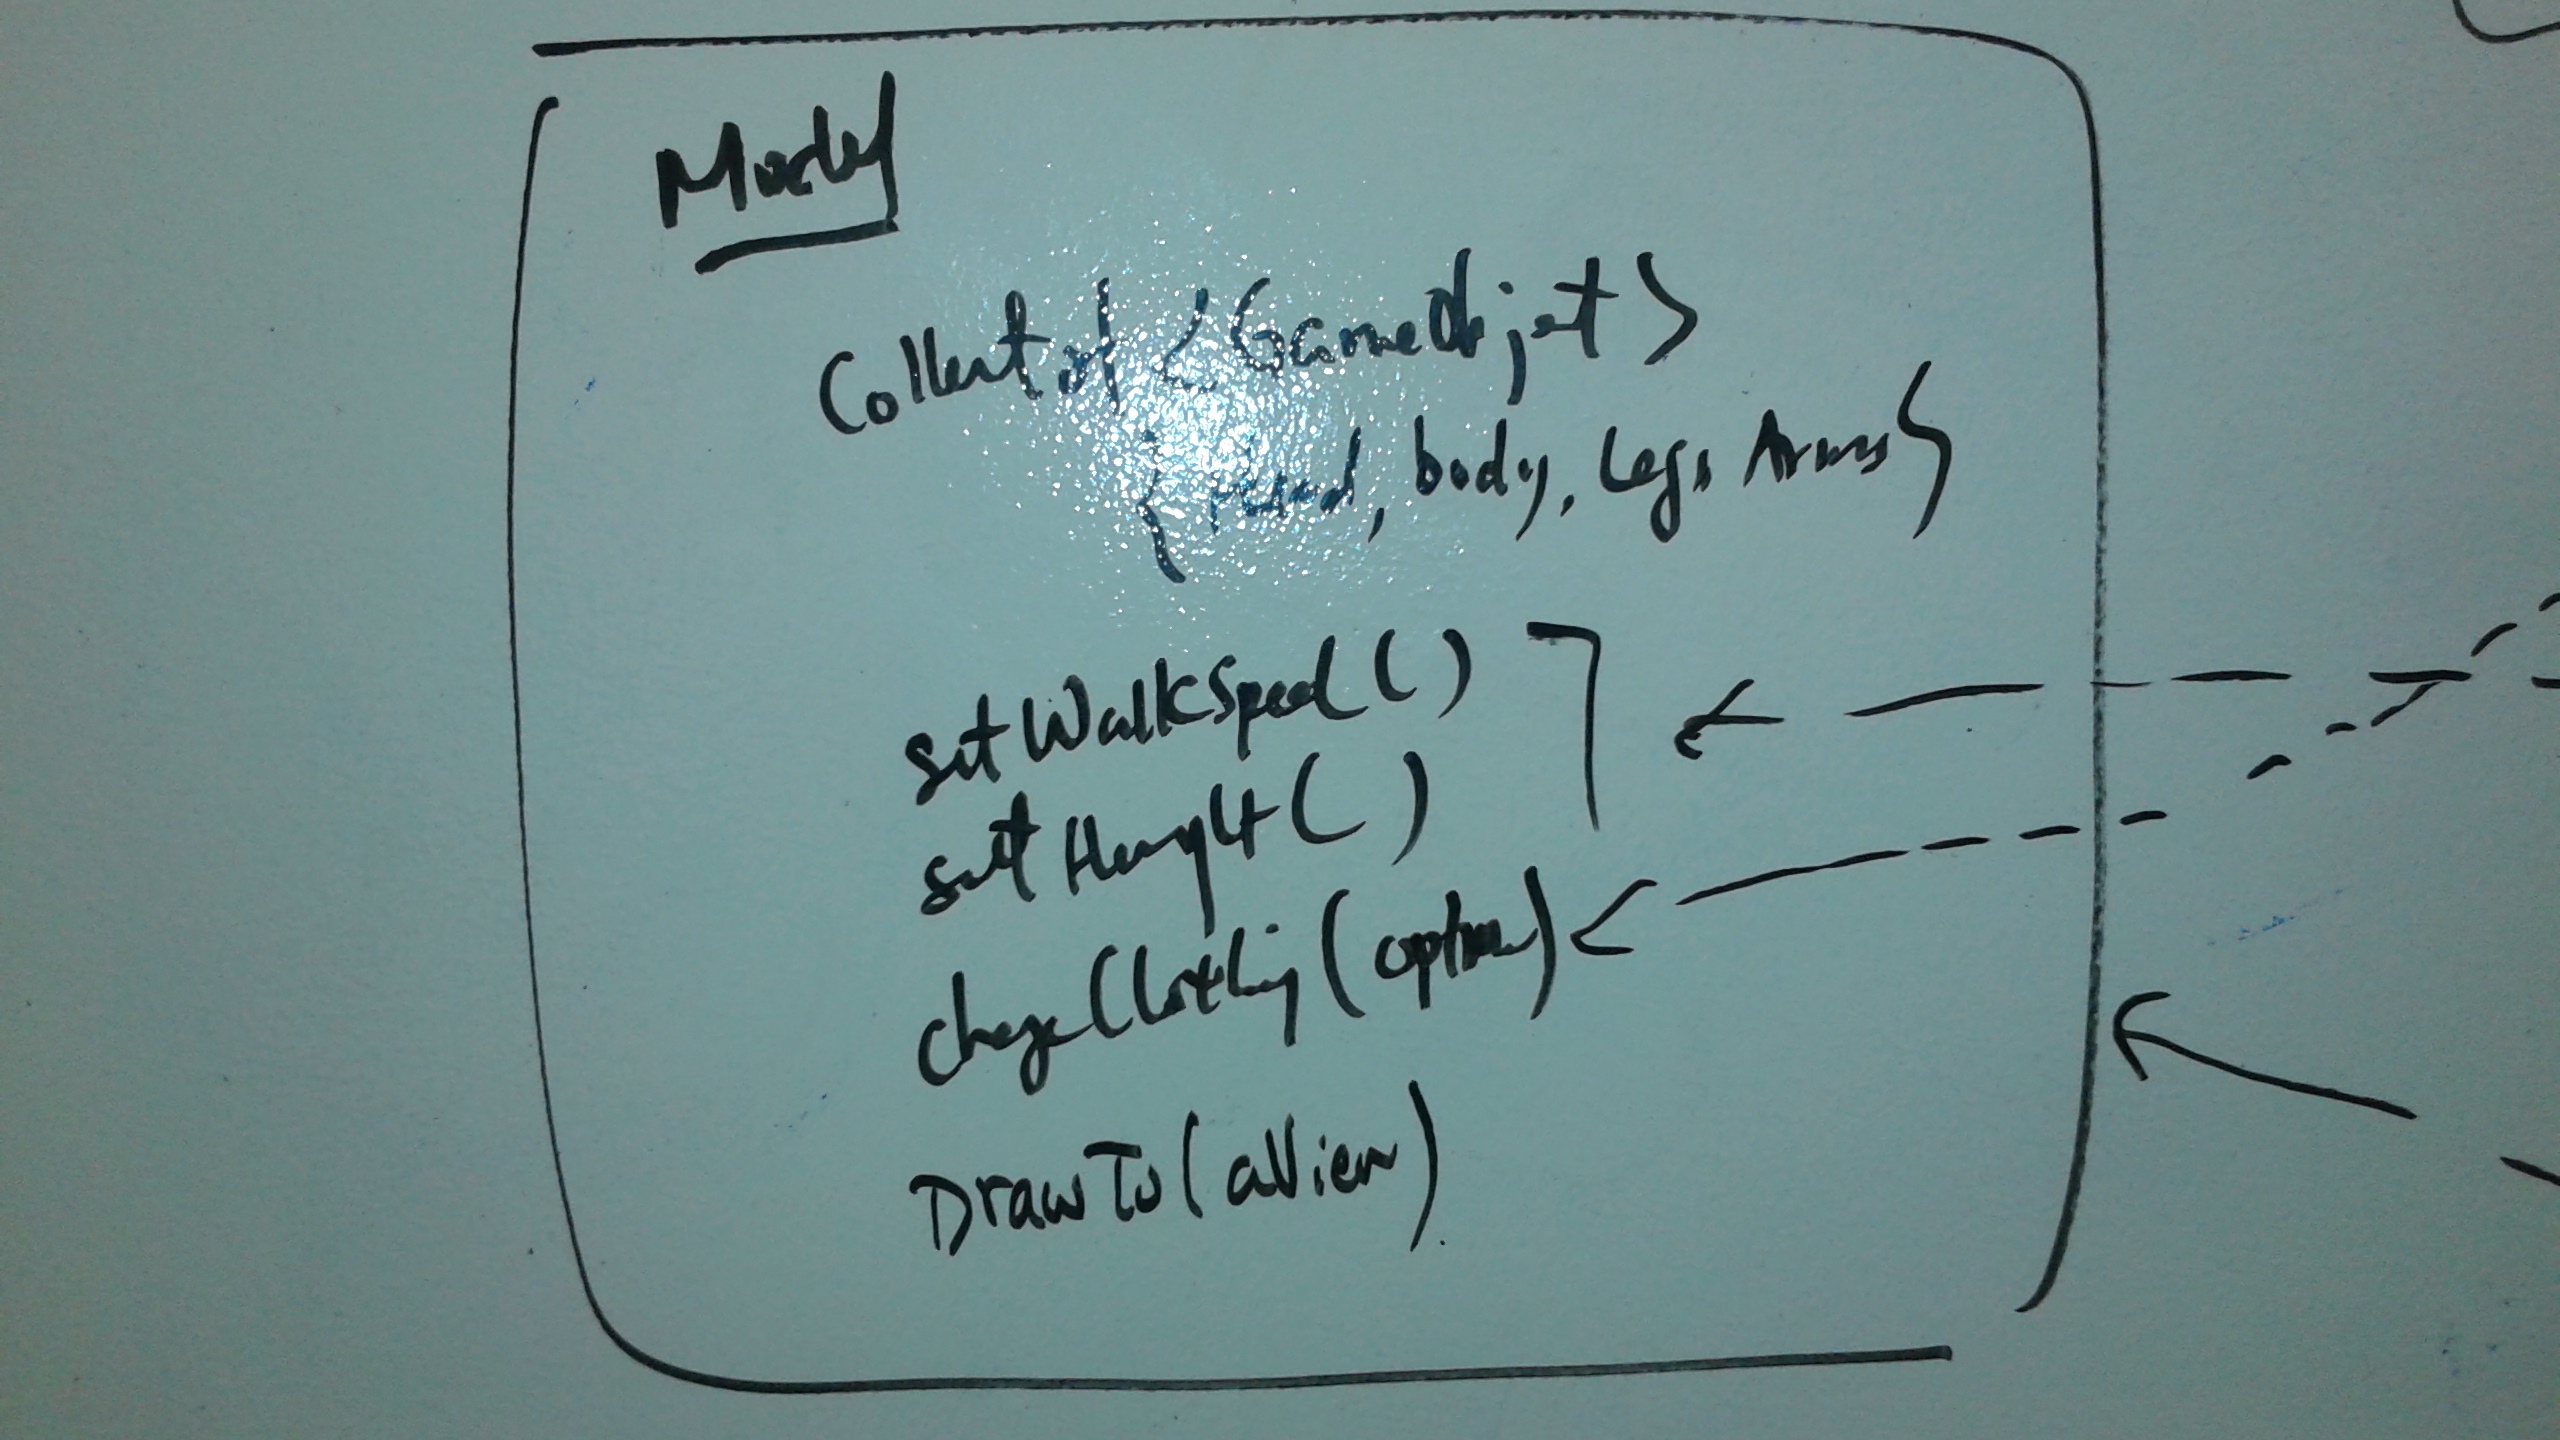 Model
Collect of <GameObjet>
{ Head, body, Legs Arms }
setWalkSpeed ( )
set Height ( )
chageClothing (option)
DrawTo (aView)